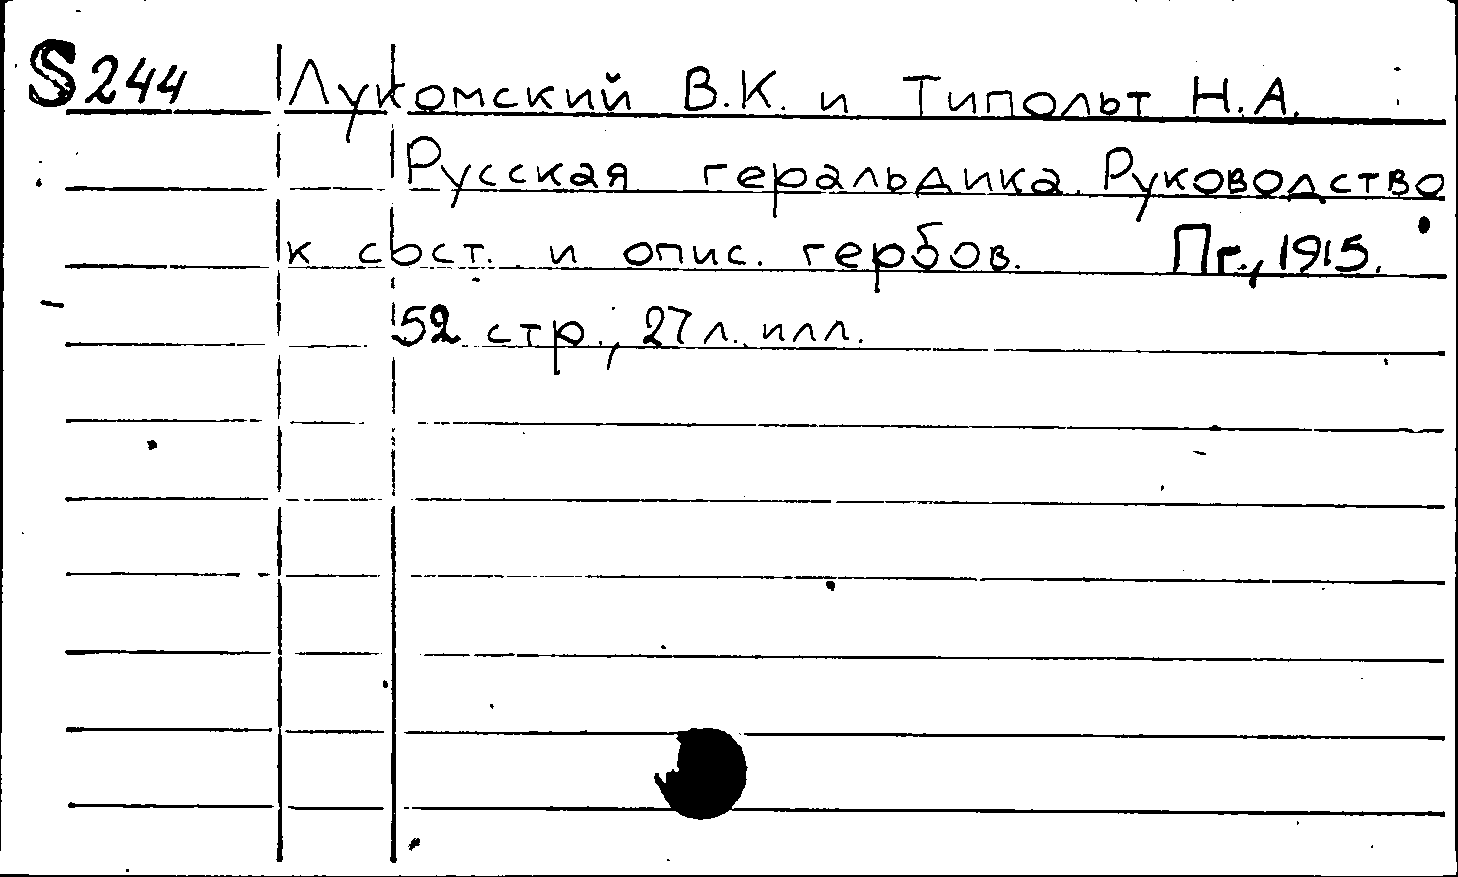 S244 Лукомский В.К. и Типольт Н.А.
Русская геральдика. Руководство
к сост. и опис. гербов. Пг., 1915.
52 стр., 27 л. илл.